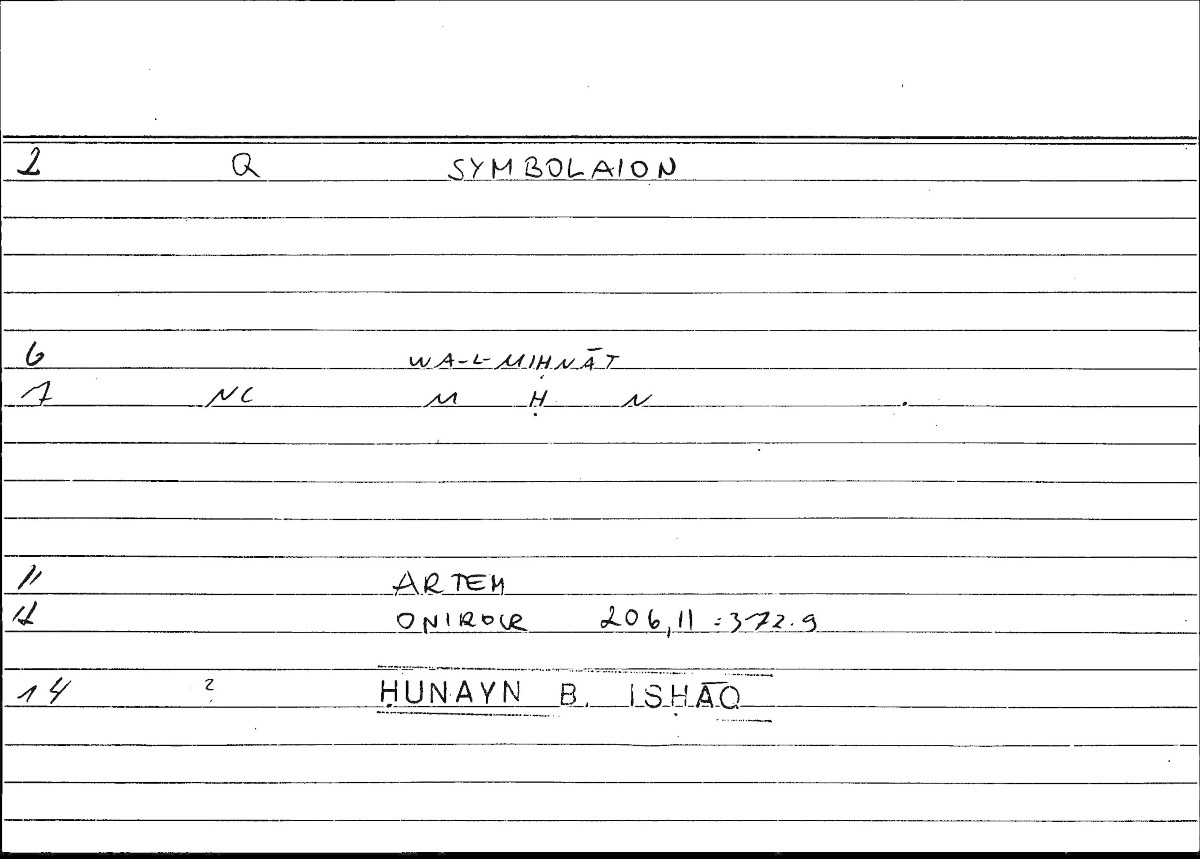 2 Q SYMBOLAION
6 WA-L-MIḤNĀT
7 NC M Ḥ N .
11 ARTEM
12 ONIROCR 206,11 : 372.9
14 ? ḤUNAYN B. ISḤĀQ